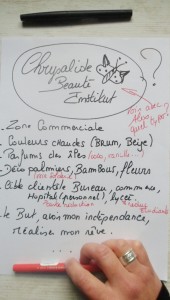 Chrysalide
Beauté
Institut
?
. Zone Commerciale
. Couleurs chaudes (Brum, Beige)
. Parfums des îles (coco, vanille...)
. Déco palmiers, Bambous, fleurs
. Cible clientèle Bureau, commerces,
Hôpital (personnel), lycée.
. Le But, avoir mon indépendance,
réaliser mon rêve.